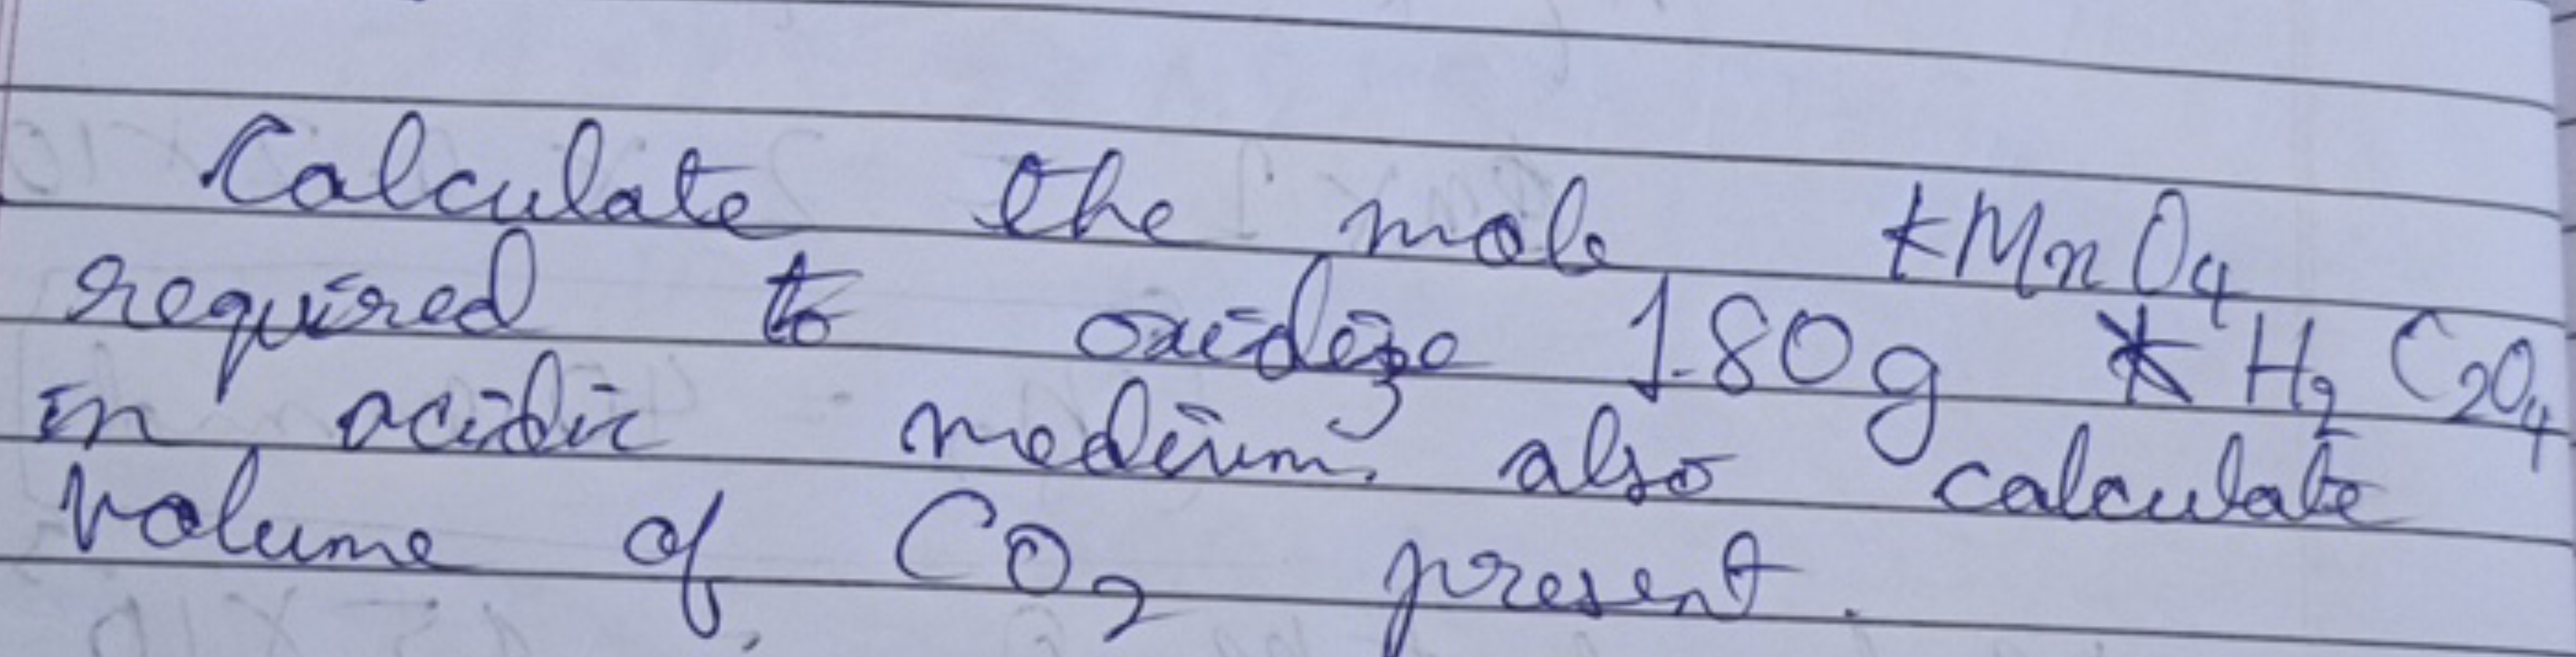 Calculate the mole KMnO4
required to oxidize 1.80g H2C2O4
in acidic medium. also calculate
volume of CO2 present.